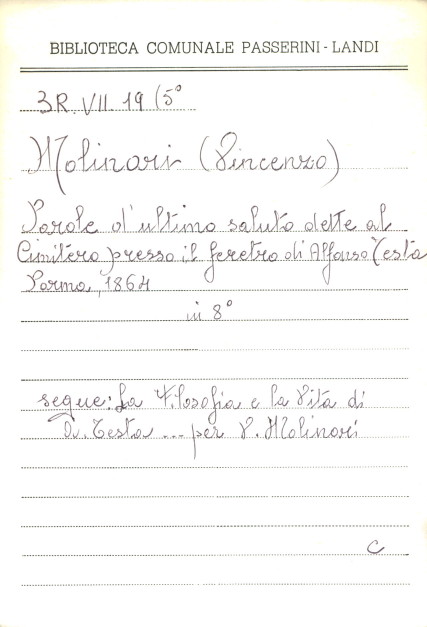 BIBLIOTECA COMUNALE PASSERINI - LANDI
3R. VII. 19 (5°
Molinari (Vincenzo)
Parole d'ultimo saluto dette al
Cimitero presso il feretro di Alfonso Testa
Parma, 1864
in 8°
segue: La Filosofia e la Vita di
A. Testa ... per V. Molinari
C